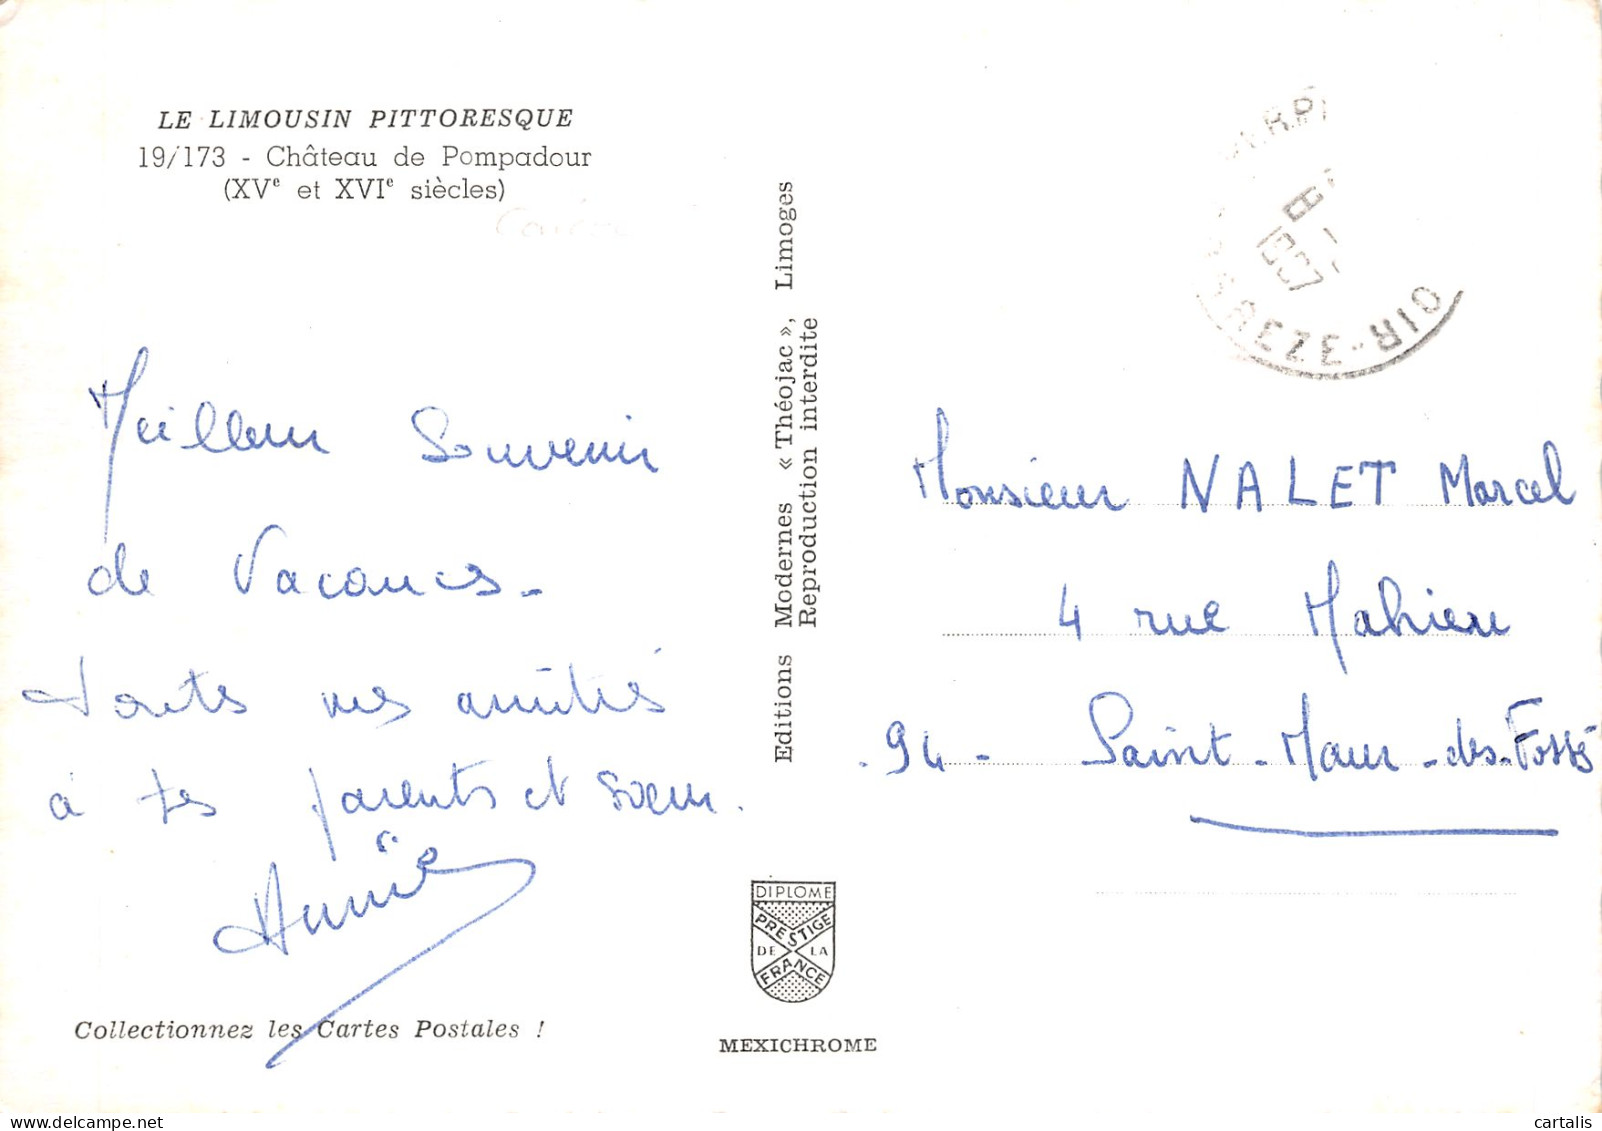 LE LIMOUSIN PITTORESQUE
19/173 - Château de Pompadour
(XVe et XVIe siècles)
Meilleur Souvenir
de Vacances -
toutes mes amitiés
à tes parents et soeur.
Annie
Collectionnez les Cartes Postales !
Editions Modernes « Théojac », Limoges
Reproduction interdite
DIPLOME
PRESTIGE
DE LA
FRANCE
MEXICHROME
Monsieur NALET Marcel
4 rue Mahieu
94 - Saint-Maur-des-Fossés
cartalis
delcampe.net